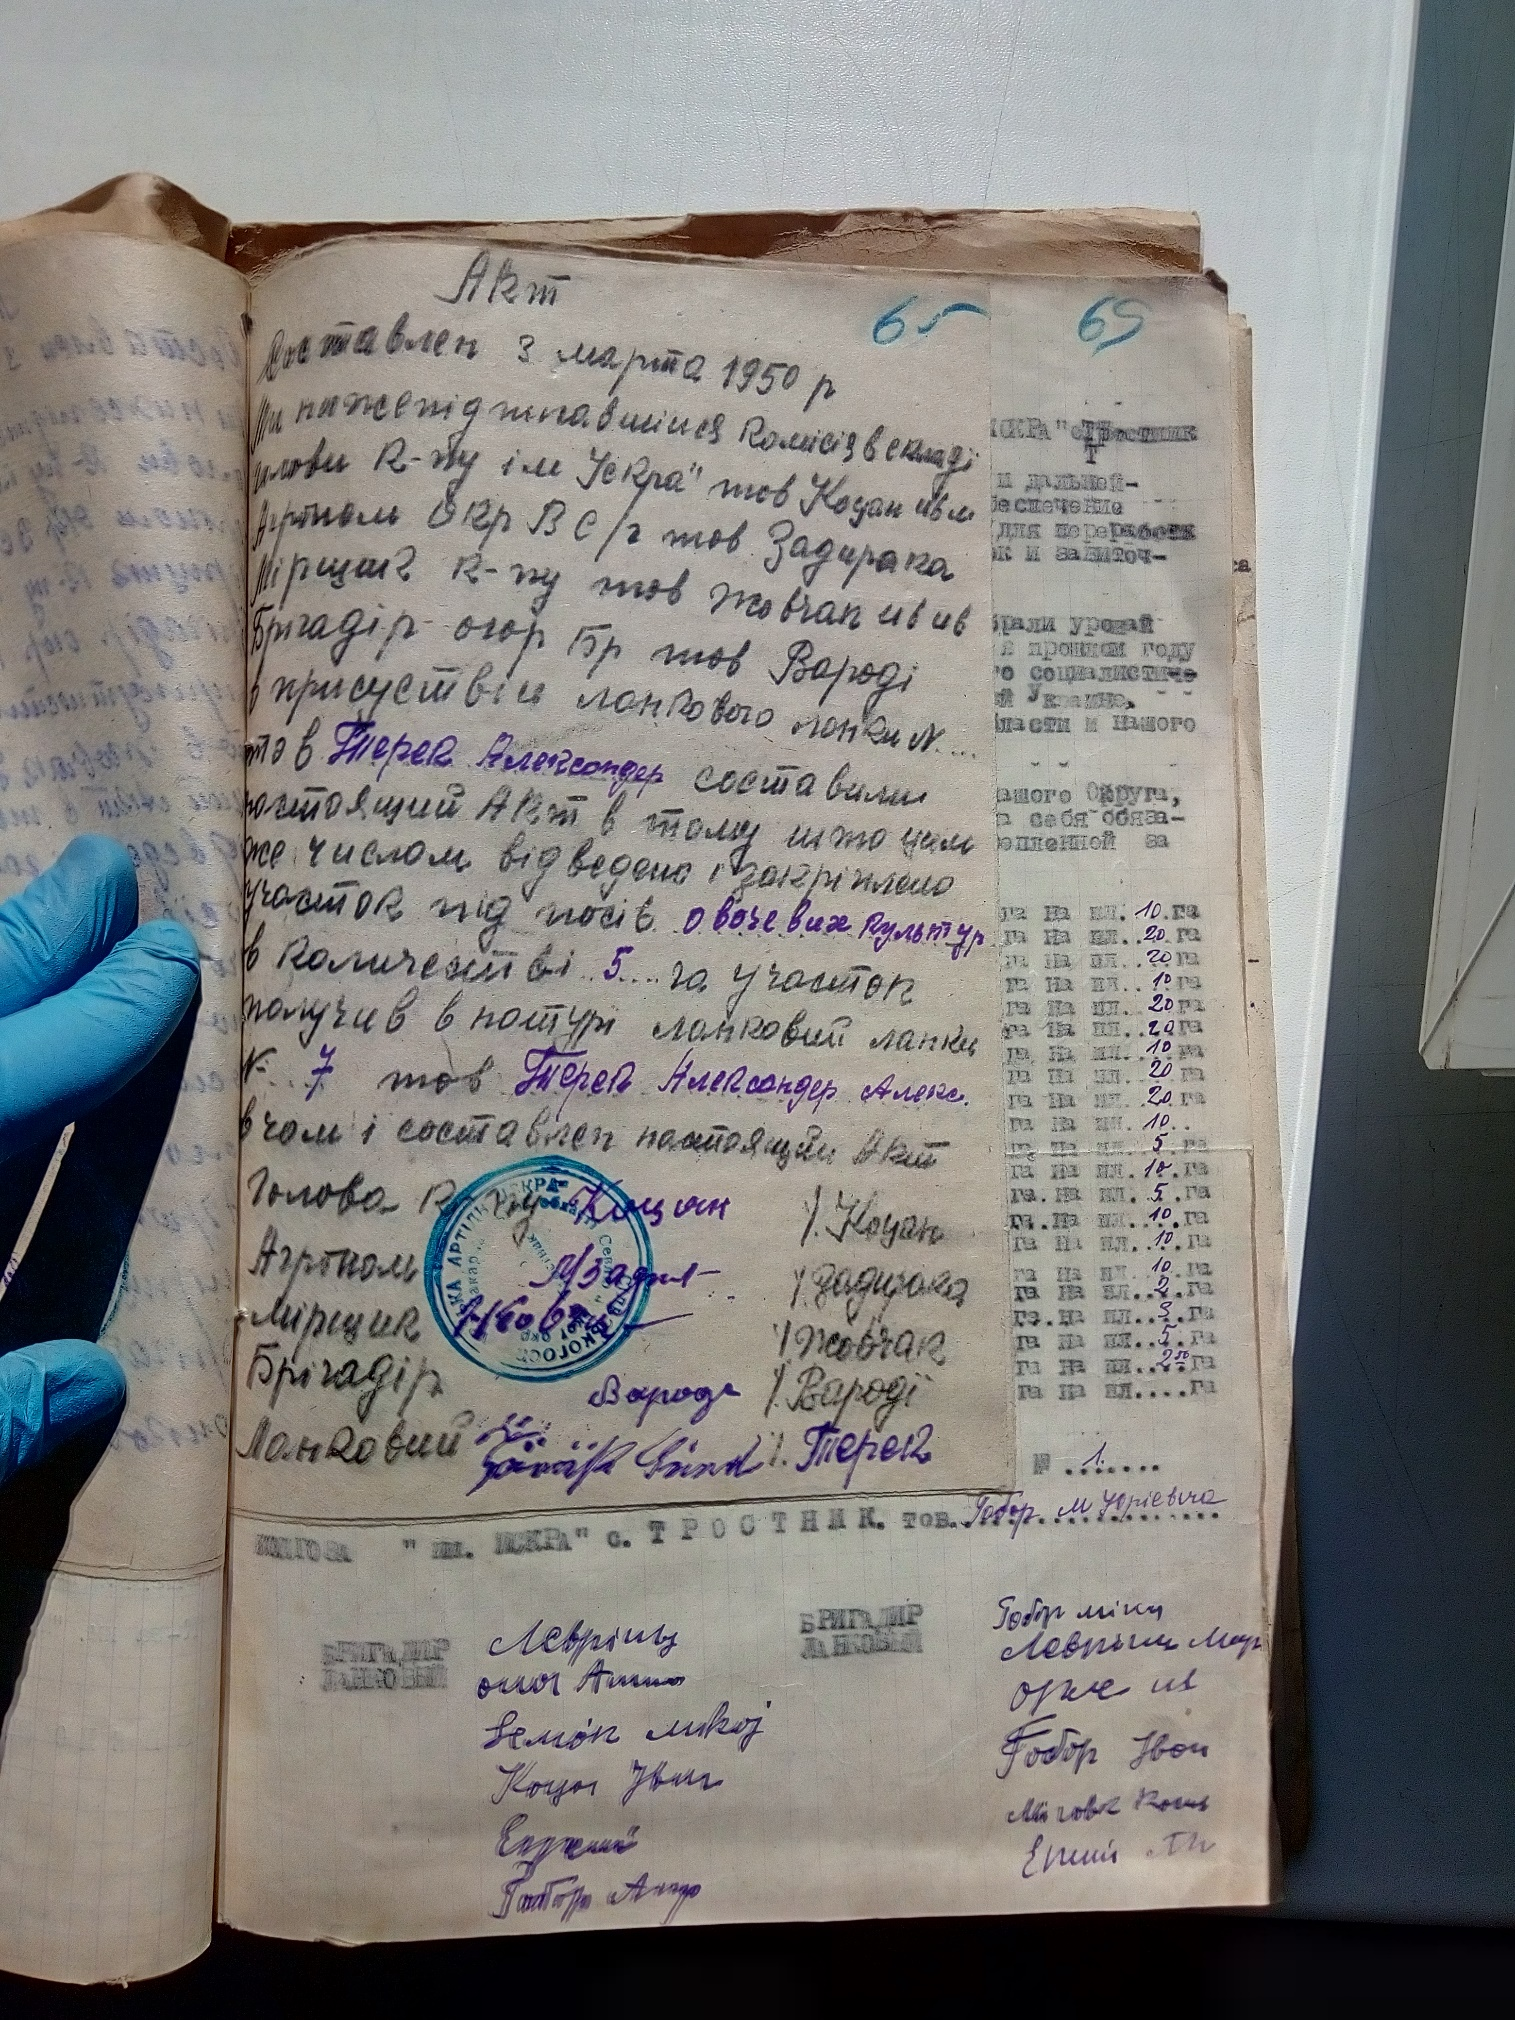 Акт
65
69
Составлен 3 марта 1950 р
Ми нижепідписавшиися Комісія в складі
голови К-пу ім Іскра" тов Коцан ив м
Агроном Окр В С/г тов Задирака
Мірщик к-пу тов Жовчак ив ив
Брігадір огор Бр тов Вароді
в присуствіи ланкового ланки N....
тов Терек Александер составили
настоящий Акт в тому што цим
же числом відведено і закріплено
участок під посів овочевих культур
в количестві..5....га участок
получив в натурі ланковий ланки
N- 7 тов Терек Александер Алекс.
в чом і составлен настоящий Акт
Голова К-пу Коцан /. Коцан
Агроном /. Задирака
Мірщик /. Жовчак
Брігадір Вароди /. Вароді
Ланковий /. Терек
ИСКРА" с. Тростник
и дальней-
беспечение
для переработк
ок и заниточ-
брали урожай
в прошлом году
го социалистиче
ей Украине.
бласти и нашого
ашого Округа,
а себя обяза-
репленной за
га на пл. 10.га
га на пл..20 га
га на пл..20 га
га на пл.. 10 га
га на пл.. 20 га
га на пл.. 20 га
га на пл.. 10 га
га на пл.. 20 га
га на пл... 20. га
га на пл.. 10..
га на пл... 5 га
га на пл..10. га
га. на пл... 5 .га
га..на пл.. 10 .га
га на пл... 10 га
га на пл... 10. га
га на пл... 2...га
га.на пл... 3..га
га на пл... 5. га
га на пл... 2 50 га
га на пл....га
№ ..1.....
КОЛГОЗА " им. ИСКРА" с. ТРОСТНИК. тов. Гобор М Юріевича
БРИГАДИР
ЛАНКОВЫЙ
Анна
Коцан Іван
БРИГАДИР
ЛАНКОВЫЙ
Гобор
Гобор Іван